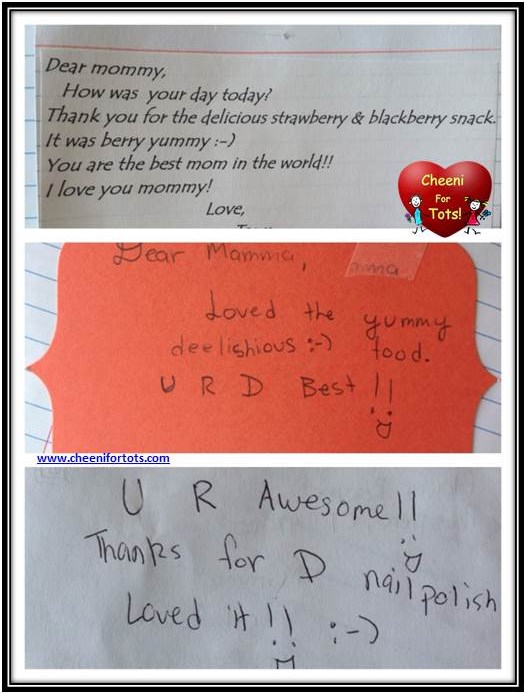 Dear mommy,
How was your day today?
Thank you for the delicious strawberry & blackberry snack.
It was berry yummy :-)
You are the best mom in the world!!
I love you mommy!
Love,
Cheeni
For
Tots!
Dear Mamma,
Loved the yummy
deelishious :-) food.
U R D Best !!
www.cheenifortots.com
U R Awesome!!
Thanks for D nail polish
Loved it!! :-)